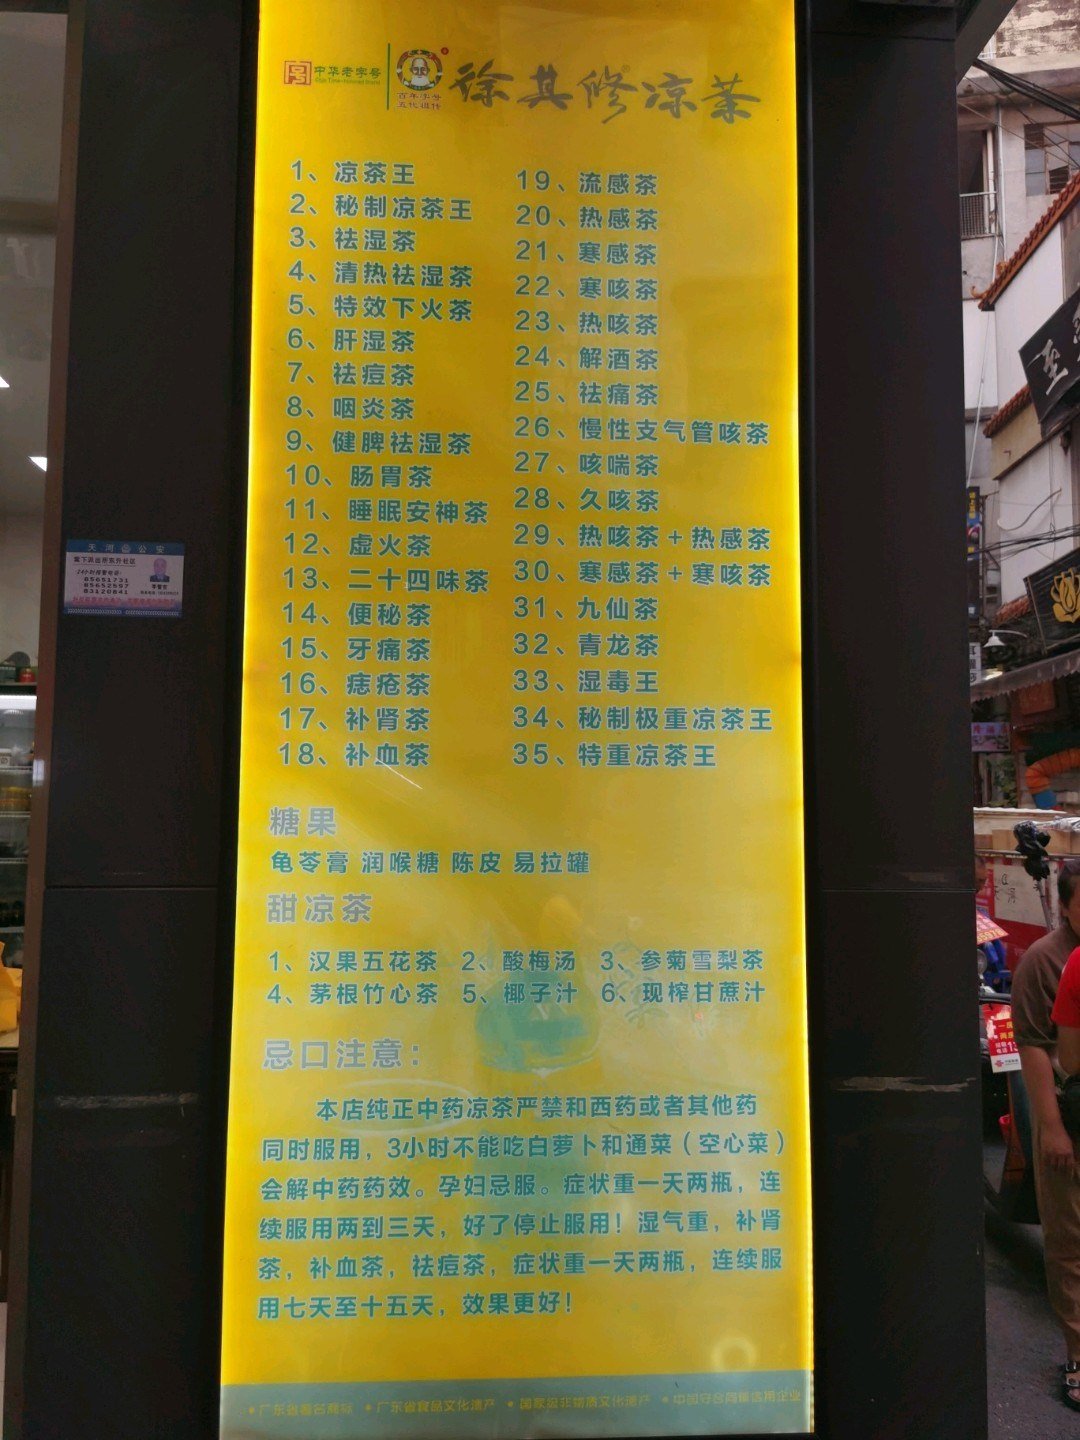 中华老字号
百年字号
五代祖传
徐其修凉茶
1、凉茶王
2、秘制凉茶王
3、祛湿茶
4、清热祛湿茶
5、特效下火茶
6、肝湿茶
7、祛痘茶
8、咽炎茶
9、健脾祛湿茶
10、肠胃茶
11、睡眠安神茶
12、虚火茶
13、二十四味茶
14、便秘茶
15、牙痛茶
16、痣疮茶
17、补肾茶
18、补血茶
19、流感茶
20、热感茶
21、寒感茶
22、寒咳茶
23、热咳茶
24、解酒茶
25、祛痛茶
26、慢性支气管咳茶
27、咳喘茶
28、久咳茶
29、热咳茶+热感茶
30、寒感茶+寒咳茶
31、九仙茶
32、青龙茶
33、湿毒王
34、秘制极重凉茶王
35、特重凉茶王
糖果
龟苓膏 润喉糖 陈皮 易拉罐
甜凉茶
1、汉果五花茶 2、酸梅汤 3、参菊雪梨茶
4、茅根竹心茶 5、椰子汁 6、现榨甘蔗汁
忌口注意：
本店纯正中药凉茶严禁和西药或者其他药
同时服用，3小时不能吃白萝卜和通菜（空心菜）
会解中药药效。孕妇忌服。症状重一天两瓶，连
续服用两到三天，好了停止服用！湿气重，补肾
茶，补血茶，祛痘茶，症状重一天两瓶，连续服
用七天至十五天，效果更好！
•广东省著名商标 •广东省食品文化遗产 •国家级非物质文化遗产 •中国守合同重信用企业
天河 公安
棠下派出所东外社区
24小时报警电话:
85651731
85652597
83120841
至